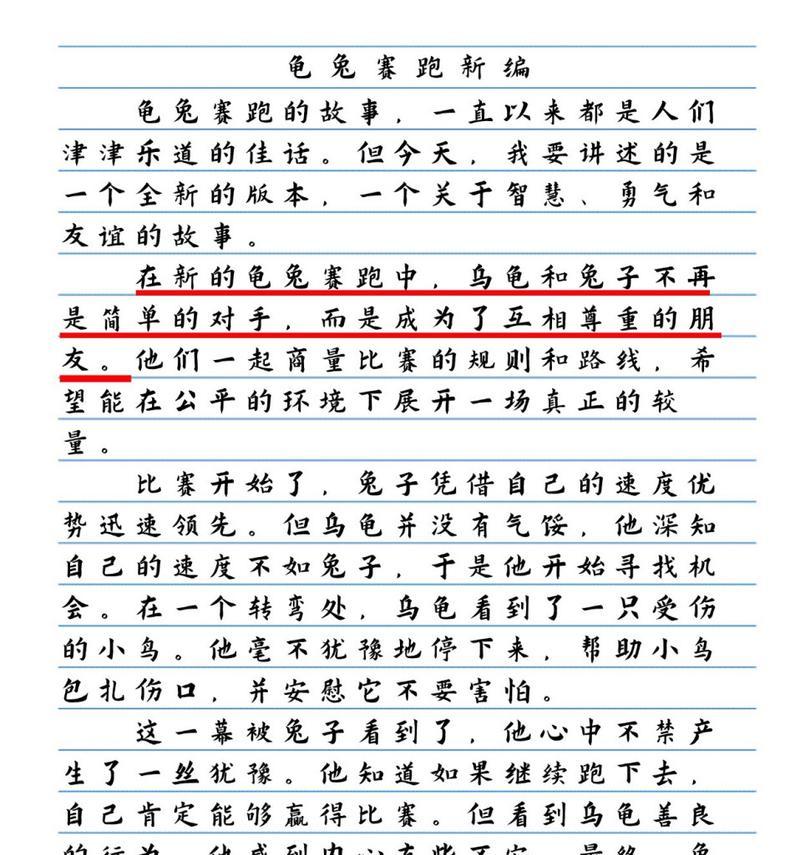 龟兔赛跑新编
龟兔赛跑的故事，一直以来都是人们
津津乐道的佳话。但今天，我要讲述的是
一个全新的版本，一个关于智慧、勇气和
友谊的故事。
在新的龟兔赛跑中，乌龟和兔子不再
是简单的对手，而是成为了互相尊重的朋
友。他们一起商量比赛的规则和路线，希
望能在公平的环境下展开一场真正的较
量。
比赛开始了，兔子凭借自己的速度优
势迅速领先。但乌龟并没有气馁，他深知
自己的速度不如兔子，于是他开始寻找机
会。在一个转弯处，乌龟看到了一只受伤
的小鸟。他毫不犹豫地停下来，帮助小鸟
包扎伤口，并安慰它不要害怕。
这一幕被兔子看到了，他心中不禁产
生了一丝犹豫。他知道如果继续跑下去，
自己肯定能够赢得比赛。但看到乌龟善良
的行为，他感到内心有些不安。最终，兔